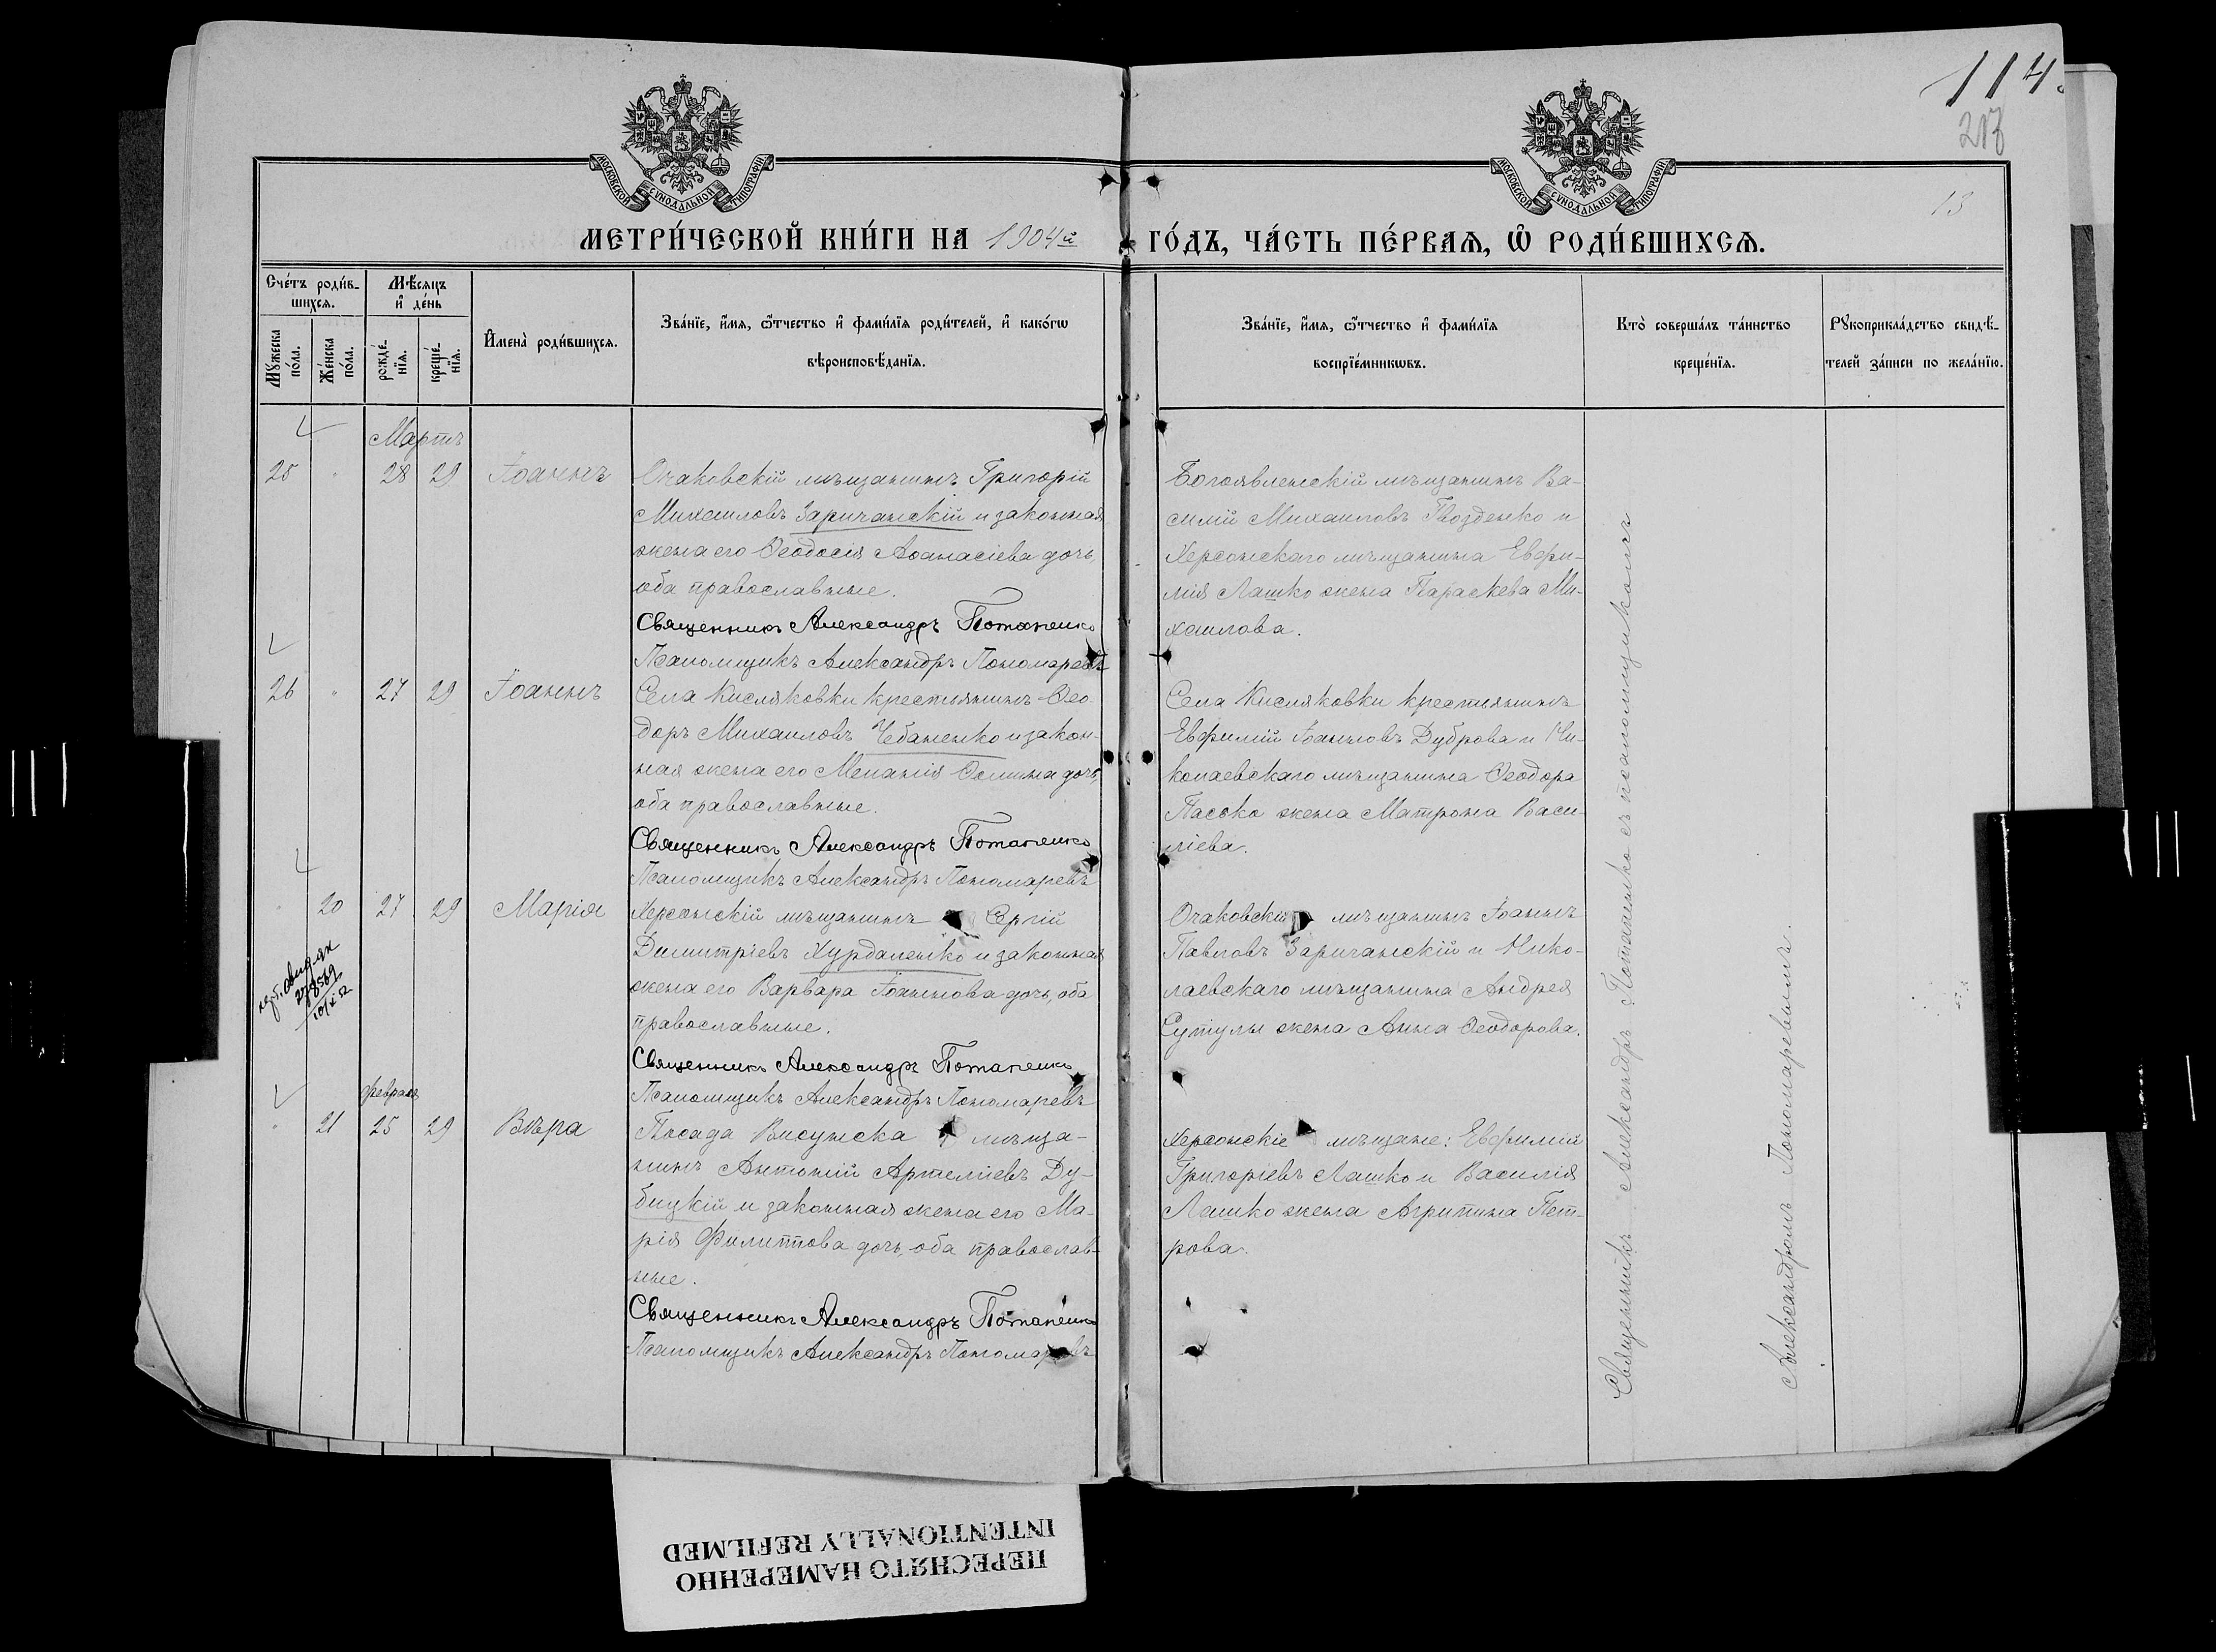 114.
217
13
МОСКОВСКОЙ СѴНОДАЛЬНОЙ ТИПОГРАФІИ
МОСКОВСКОЙ СѴНОДАЛЬНОЙ ТИПОГРАФІИ
МЕТРИ́ЧЕСКОЙ КНИ́ГИ НА 1904й ГО́ДЪ, ЧА́СТЬ ПЕ́РВАѦ, Ѽ РОДИ́ВШИХСѦ.
Сче́тъ роди́в-
шихсѧ.
Мѣ́сѧцъ
и҆ де́нь
Мꙋжеска
по́ла.
Же́нска
по́ла.
рожде́-
нїѧ.
креще́-
нїѧ.
И҆мена̀ роди́вшихсѧ.
Зва́нїе, и҆́мѧ, ѻ҆́тчество и҆ фами́лїѧ роди́телей, и҆ како́гѡ
вѣроисповѣ́данїѧ.
Зва́нїе, и҆́мѧ, ѻ҆́тчество и҆ фами́лїѧ
воспрїе́мникѡвъ.
Кто̀ соверша́лъ та́инство
креще́нїѧ.
Рꙋкоприкла́дство свидѣ́-
телей за́писи по жела́нїю.
Мартъ
25 " 28 29 Іоаннъ
Очаковскій мѣщанинъ Григорій
Михаиловъ Заричанскій и законная
жена его Ѳеодосія Аѳанасіева дочь,
оба православные.
Священникъ Александръ Потапенко
Псаломщикъ Александръ Пономаревъ
Богоявленскій мѣщанинъ Ва-
силій Михаиловъ Гвозденко и
Херсонскаго мѣщанина Евфи-
мія Лашко жена Параскева Ми-
хаилова.
26 " 27 29 Іоаннъ
Села Кисляковки крестьянинъ Ѳео-
доръ Михаиловъ Чебаненко и закон-
ная жена его Меланія Ѳомина дочь,
оба православные.
Священникъ Александръ Потапенко
Псаломщикъ Александръ Пономаревъ
Села Кисляковки крестьянинъ
Евфимій Іоанновъ Дуброва и Ни-
колаевскаго мѣщанина Ѳеодора
Пасько жена Матрона Васи-
ліева.
" 20 27 29 Марія
278569
Херсонскій мѣщанинъ Сергій
Димитріевъ Хурдаленко и законная
жена его Варвара Іоаннова дочь, оба
православные.
Священникъ Александръ Потапенко
Псаломщикъ Александръ Пономаревъ
Очаковскій мѣщанинъ Іоаннъ
Павловъ Заричанскій и Нико-
лаевскаго мѣщанина Андрея
Сутулы жена Анна Ѳеодорова.
Февраля
" 21 25 29 Вѣра
Посада Висунска мѣща-
нинъ Антоній Артеміевъ Ду-
бицкій и законная жена его Ма-
рія Филиппова дочь, оба православ-
ные.
Священникъ Александръ Потапенко
Псаломщикъ Александръ Пономаревъ
Херсонскіе мѣщане: Евфимій
Григоріевъ Лашко и Василія
Лашко жена Агрипина Пет-
рова.
Священникъ Александръ Потапенко съ псаломщикомъ
Александромъ Пономаревымъ.
ПЕРЕСНЯТО НАМЕРЕННО
INTENTIONALLY REFILMED